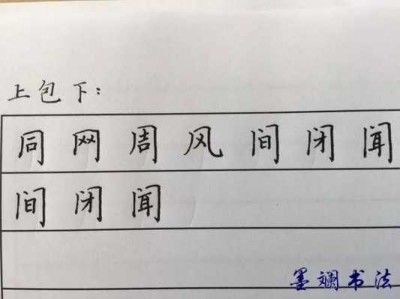 上包下：
同 网 周 风 间 闭 闻
间 闭 闻
墨斓书法